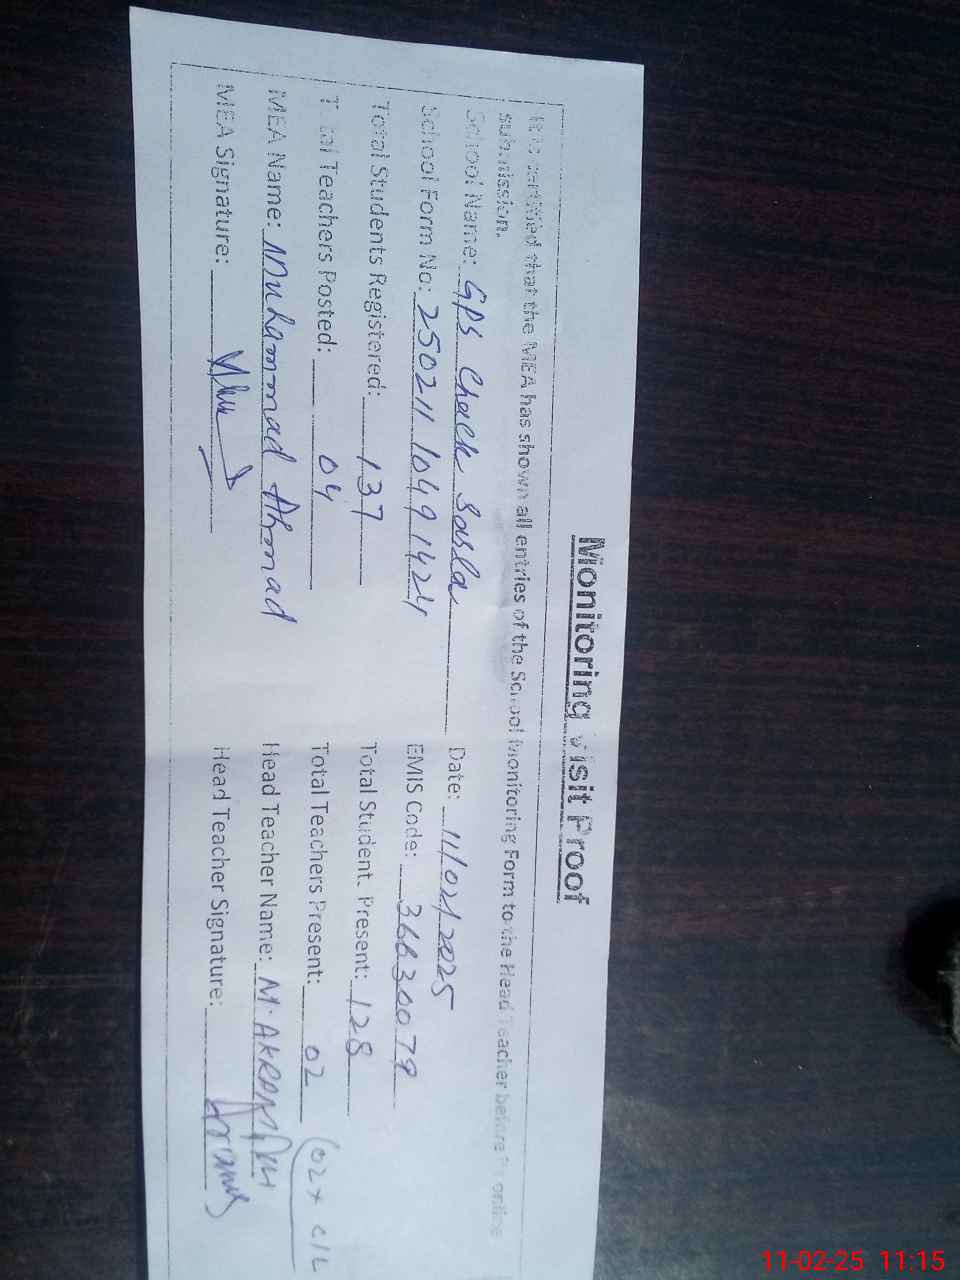 Monitoring Visit Proof
It is certified that the MEA has shown all entries of the School Monitoring Form to the Head Teacher before online
submission.
School Name: GPS Chack Sarla Date: 11/02/2025
School Form No: 25021110491424 EMIS Code: 36630079
Total Students Registered: 137 Total Student. Present: 128
Total Teachers Posted: 04 Total Teachers Present: 02 (02x C/L
MEA Name: Muhammad Ahmad Head Teacher Name: M. AKRAM
MEA Signature: Head Teacher Signature:
11-02-25 11:15